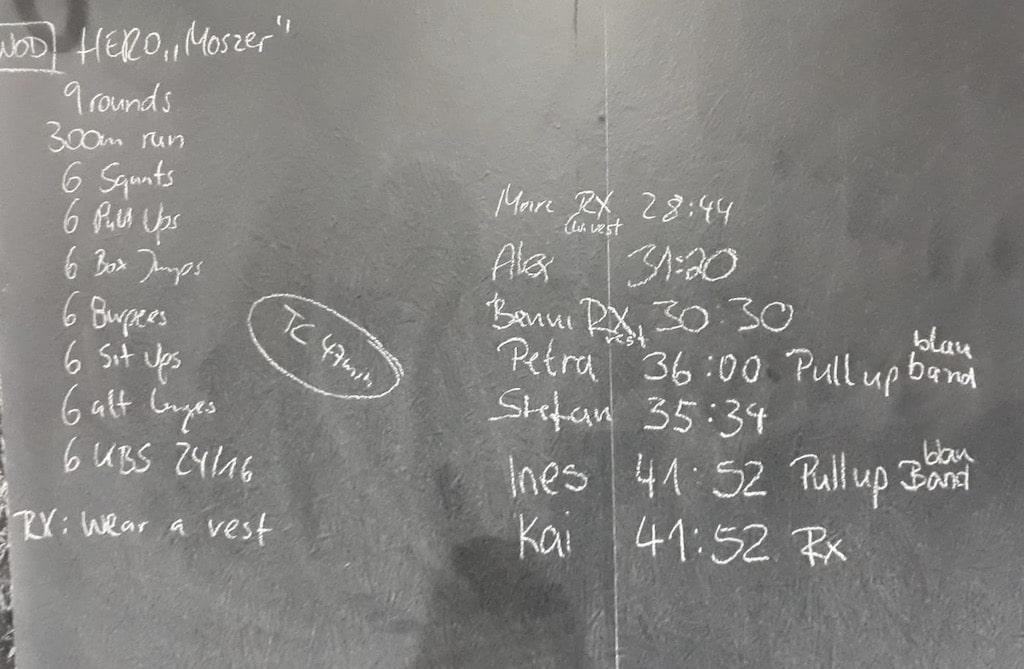 WOD HERO „Moszer"
9 rounds
300m run
6 Squats
6 Pull Ups
6 Box Jumps
6 Burpees
6 Sit Ups
6 alt lunges
6 KBS 24/16
RX: Wear a vest
TC 47min
Marc RX 28:44
(w vest
Alex 31:20
Benni RX 30:30
vest
Petra 36:00 Pull up blau band
Stefan 35:34
Ines 41:52 Pull up blau Band
Kai 41:52 Rx